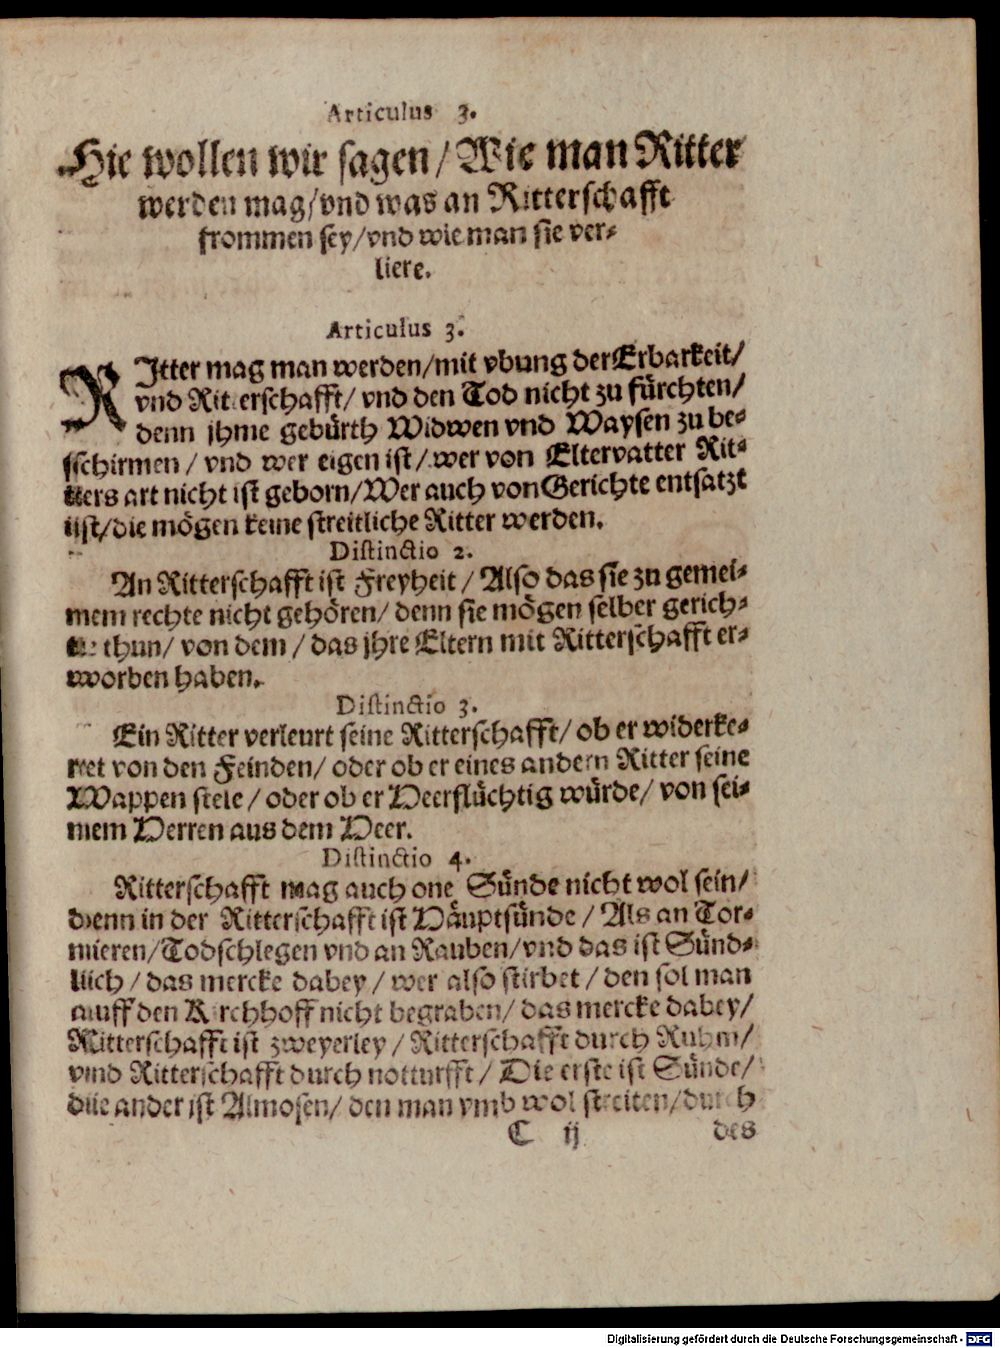 Articulus 3.
Hie wollen wir sagen/ Wie man Ritter
werden mag/ vnd was an Ritterschafft
frommen sey/ vnd wie man sie ver⸗
liere.
Articulus 3.
RItter mag man werden/ mit vbung der Erbarkeit/
vnd Ritterschafft/ vnd den Tod nicht zu fürchten/
denn jhme gebürth Widwen vnd Waysen zu be⸗
schirmen/ vnd wer eigen ist/ wer von Eltervatter Rit⸗
ters art nicht ist geborn/ Wer auch von Gerichte entsatzt
ist/ die mögen keine streitliche Ritter werden.
Distinctio 2.
An Ritterschafft ist Freyheit/ Also das sie zu gemei⸗
nem rechte nicht gehören/ denn sie mögen selber gerich⸗
te thun/ von dem/ das jhre Eltern mit Ritterschafft er⸗
worben haben.
Distinctio 3.
Ein Ritter verleurt seine Ritterschafft/ ob er widerke⸗
ret von den Feinden/ oder ob er eines andern Ritter seine
Wappen stele/ oder ob er Heerflüchtig würde/ von sei⸗
nem Herren aus dem Heer.
Distinctio 4.
Ritterschafft mag auch one Sünde nicht wol sein/
denn in der Ritterschafft ist Häuptsünde/ Als an Tor⸗
nieren/ Todschlegen vnd an Rauben/ vnd das ist Sünd⸗
lich/ das mercke dabey/ wer also stirbet/ den sol man
auff den Kirchhoff nicht begraben/ das mercke dabey/
Ritterschafft ist zweyerley/ Ritterschafft durch Ruhm/
vnd Ritterschafft durch notturfft/ Die erste ist Sünde/
die ander ist Almosen/ den man vmb wol streiten/ durch
C ij des
Digitalisierung gefördert durch die Deutsche Forschungsgemeinschaft - DFG